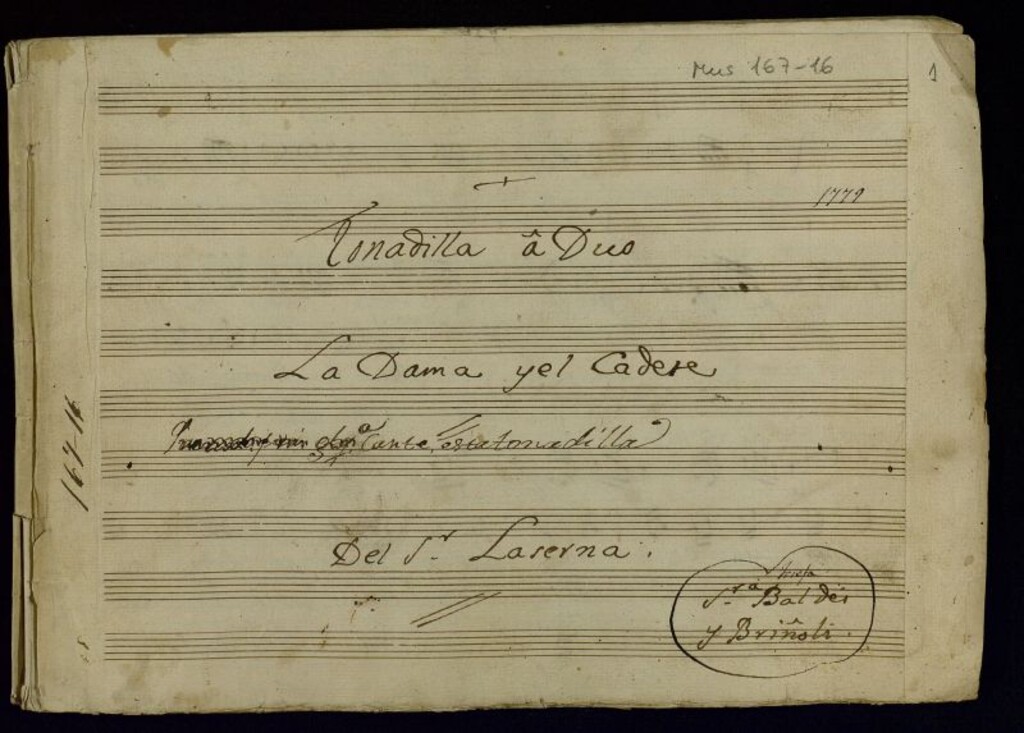 Mus 167-16
1
1779
Tonadilla â Duo
La Dama y el Cadete
Cante, esta tonadilla
167-16
Del Sr. Laserna.
Sra. Baldés
y Briñoli.